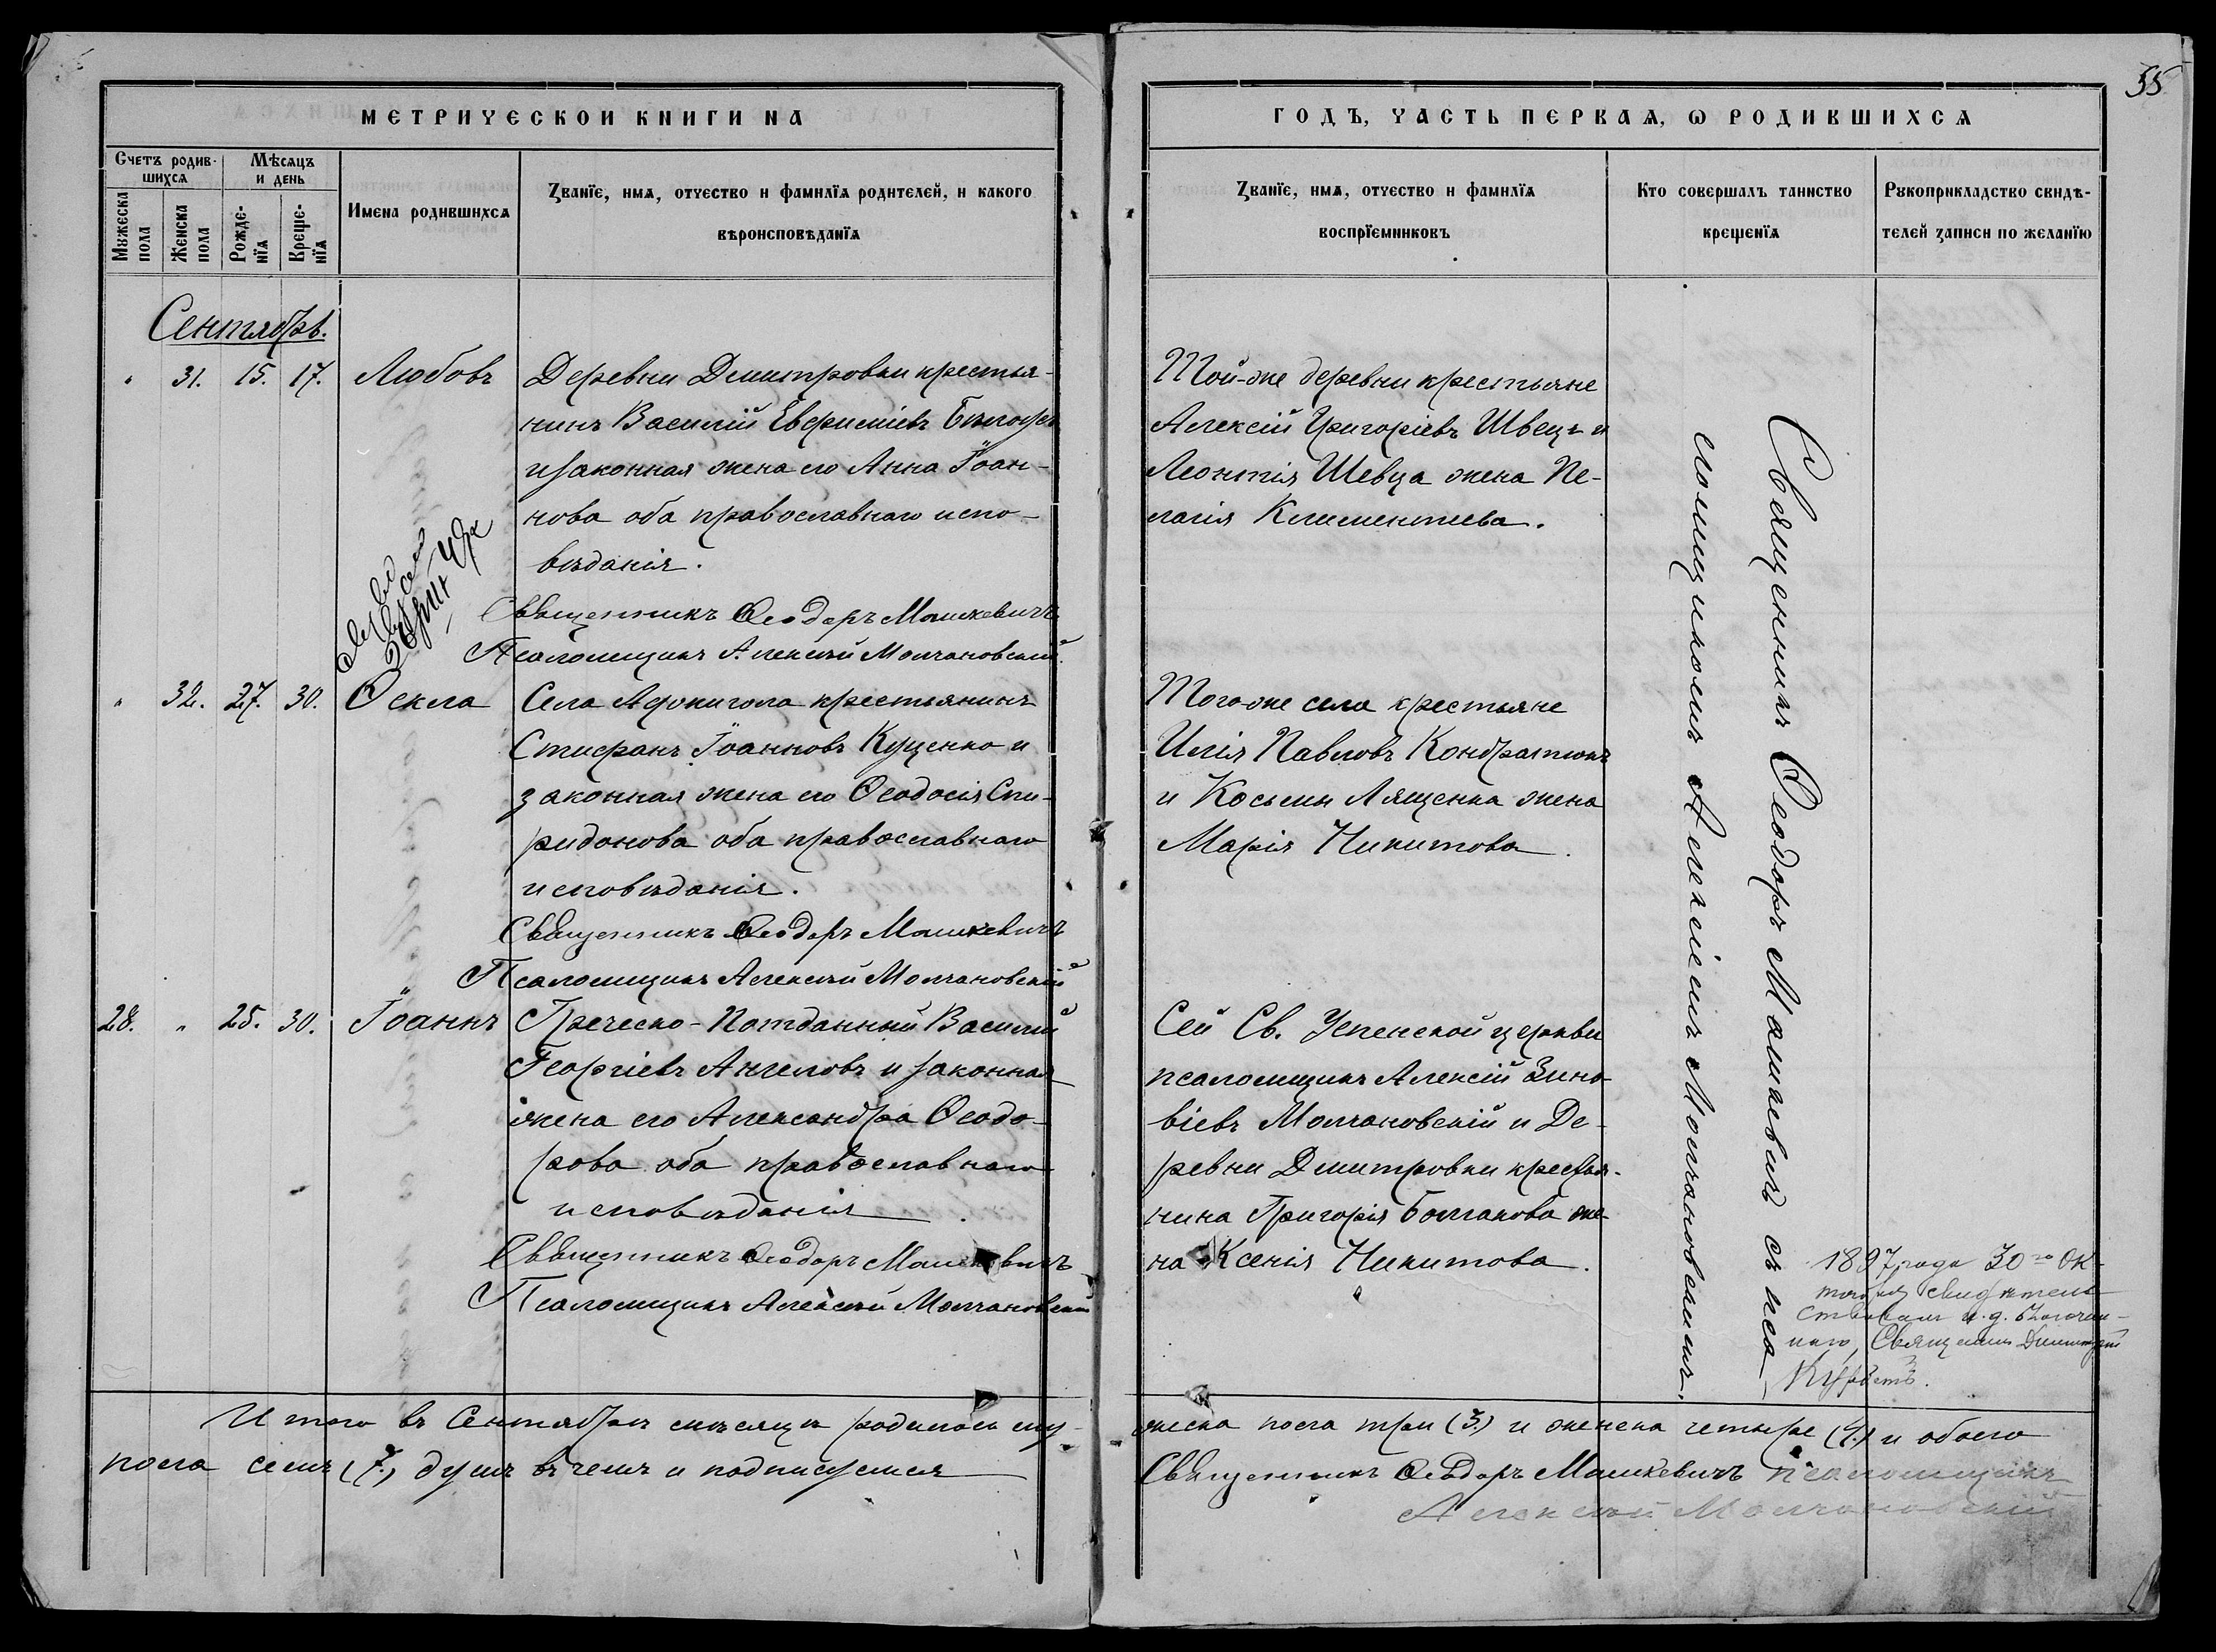 55
МЕТРИЧЕСКОИ КНИГИ НА
ГОДЪ, ЧАСТЬ ПЕРВАѦ, Ѡ РОДИВШИХСѦ
Счетъ родив-
шихсѧ
Мѣсѧцъ
и день
Мужеска
пола
Женска
пола
Рожде-
нїѧ
Креще-
нїѧ
Имена родившихсѧ
Званїе, имѧ, отчество и фамилїѧ родителей, и какого
вѣроисповѣданїѧ
Званїе, имѧ, отчество и фамилїѧ
воспрїемниковъ
Кто совершалъ таинство
крещенїѧ
Рукоприкладство свидѣ-
телей записи по желанїю
Сентябрь.
" 31. 15. 17. Любовь
Деревни Дмитровки крестья-
нинъ Василій Евфиміевъ
и законная жена его Анна Іоан-
нова оба православнаго испо-
вѣданія.
Священникъ Ѳеодоръ Машкевичъ
Псаломщикъ Алексѣй Молчановскій.
Той-же деревни крестьяне
Алексій Григоріевъ Швецъ и
Леонтія Шевца жена Пе-
лагія Климентиева.
" 32. 27. 30. Ѳекла
Села крестьянинъ
Стефанъ Іоанновъ Куценко и
законная жена его Ѳеодосія Спи-
ридонова оба православнаго
исповѣданія.
Священникъ Ѳеодоръ Машкевичъ
Псаломщикъ Алексѣй Молчановскій
Того-же села крестьяне
Илія Павловъ Кондратюкъ
и Косьмы Лященка жена
Марія Никитова.
28. " 25. 30. Іоаннъ
Греческо-Потданный Василій
Георгіевъ Ангеловъ и законная
жена его Александра Ѳеодо-
рова оба православнаго
исповѣданія.
Священникъ Ѳеодоръ Машкевичъ
Псаломщикъ Алексѣй Молчановскій
Сей Св. Успенской церкви
псаломщикъ Алексій Зино-
віевъ Молчановскій и Де-
ревни Дмитровки крестья-
нина Григорія Болгакова же-
на Ксенія Никитова.
Священникъ Ѳеодоръ Машкевичъ съ пса-
ломщикомъ Алексіемъ Молчановскимъ.
1897 года 30го Ок-
тября свидѣтель-
ствовалъ и. д. благочин-
наго, Священникъ Димитрій
Итого въ Сентябрѣ мѣсяцѣ родилось му-
жеска пола три (3.) и женска четыре (4.) и обоего
пола семь (7.) душъ въ чемъ и подписуемся
Священникъ Ѳеодоръ Машкевичъ псаломщикъ
Алексѣй Молчановскій